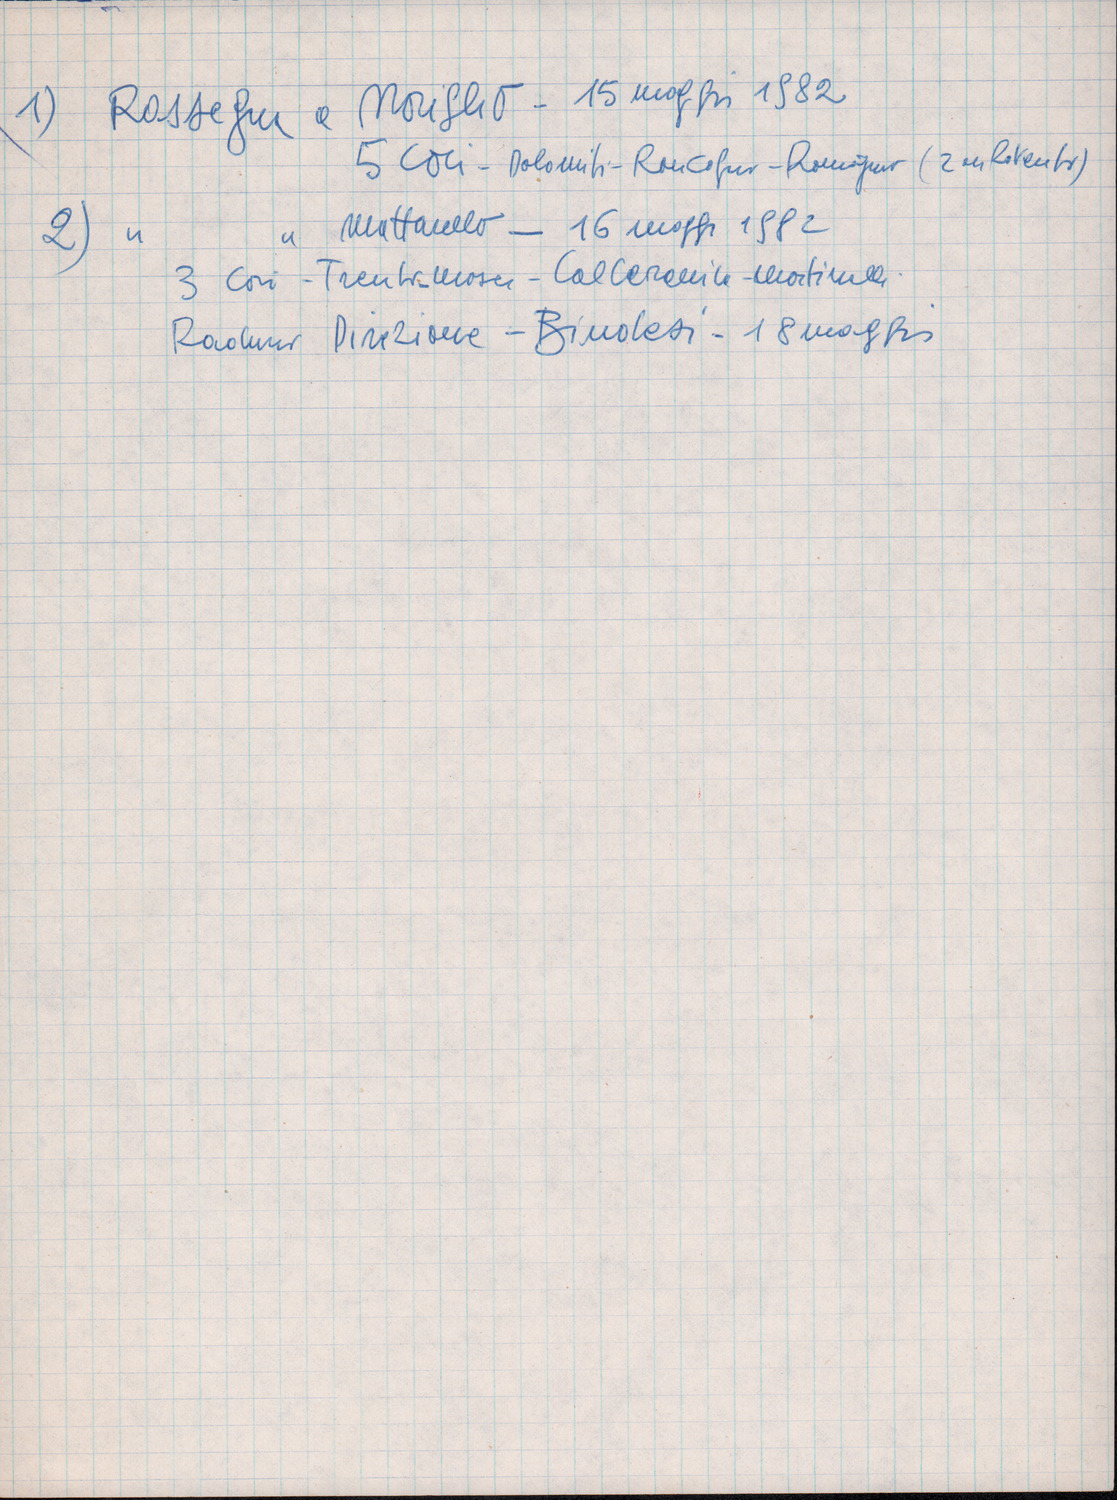 1) Rassegna a Noriglio - 15 maggio 1982
5 Cori - Dolomiti - Roncegno - Romagnano (2 in Rovereto)
2) " " Mattarello — 16 maggio 1982
3 Cori - Trento - Calceranica - Martinella.
Direzione - Bindesi - 18 maggio